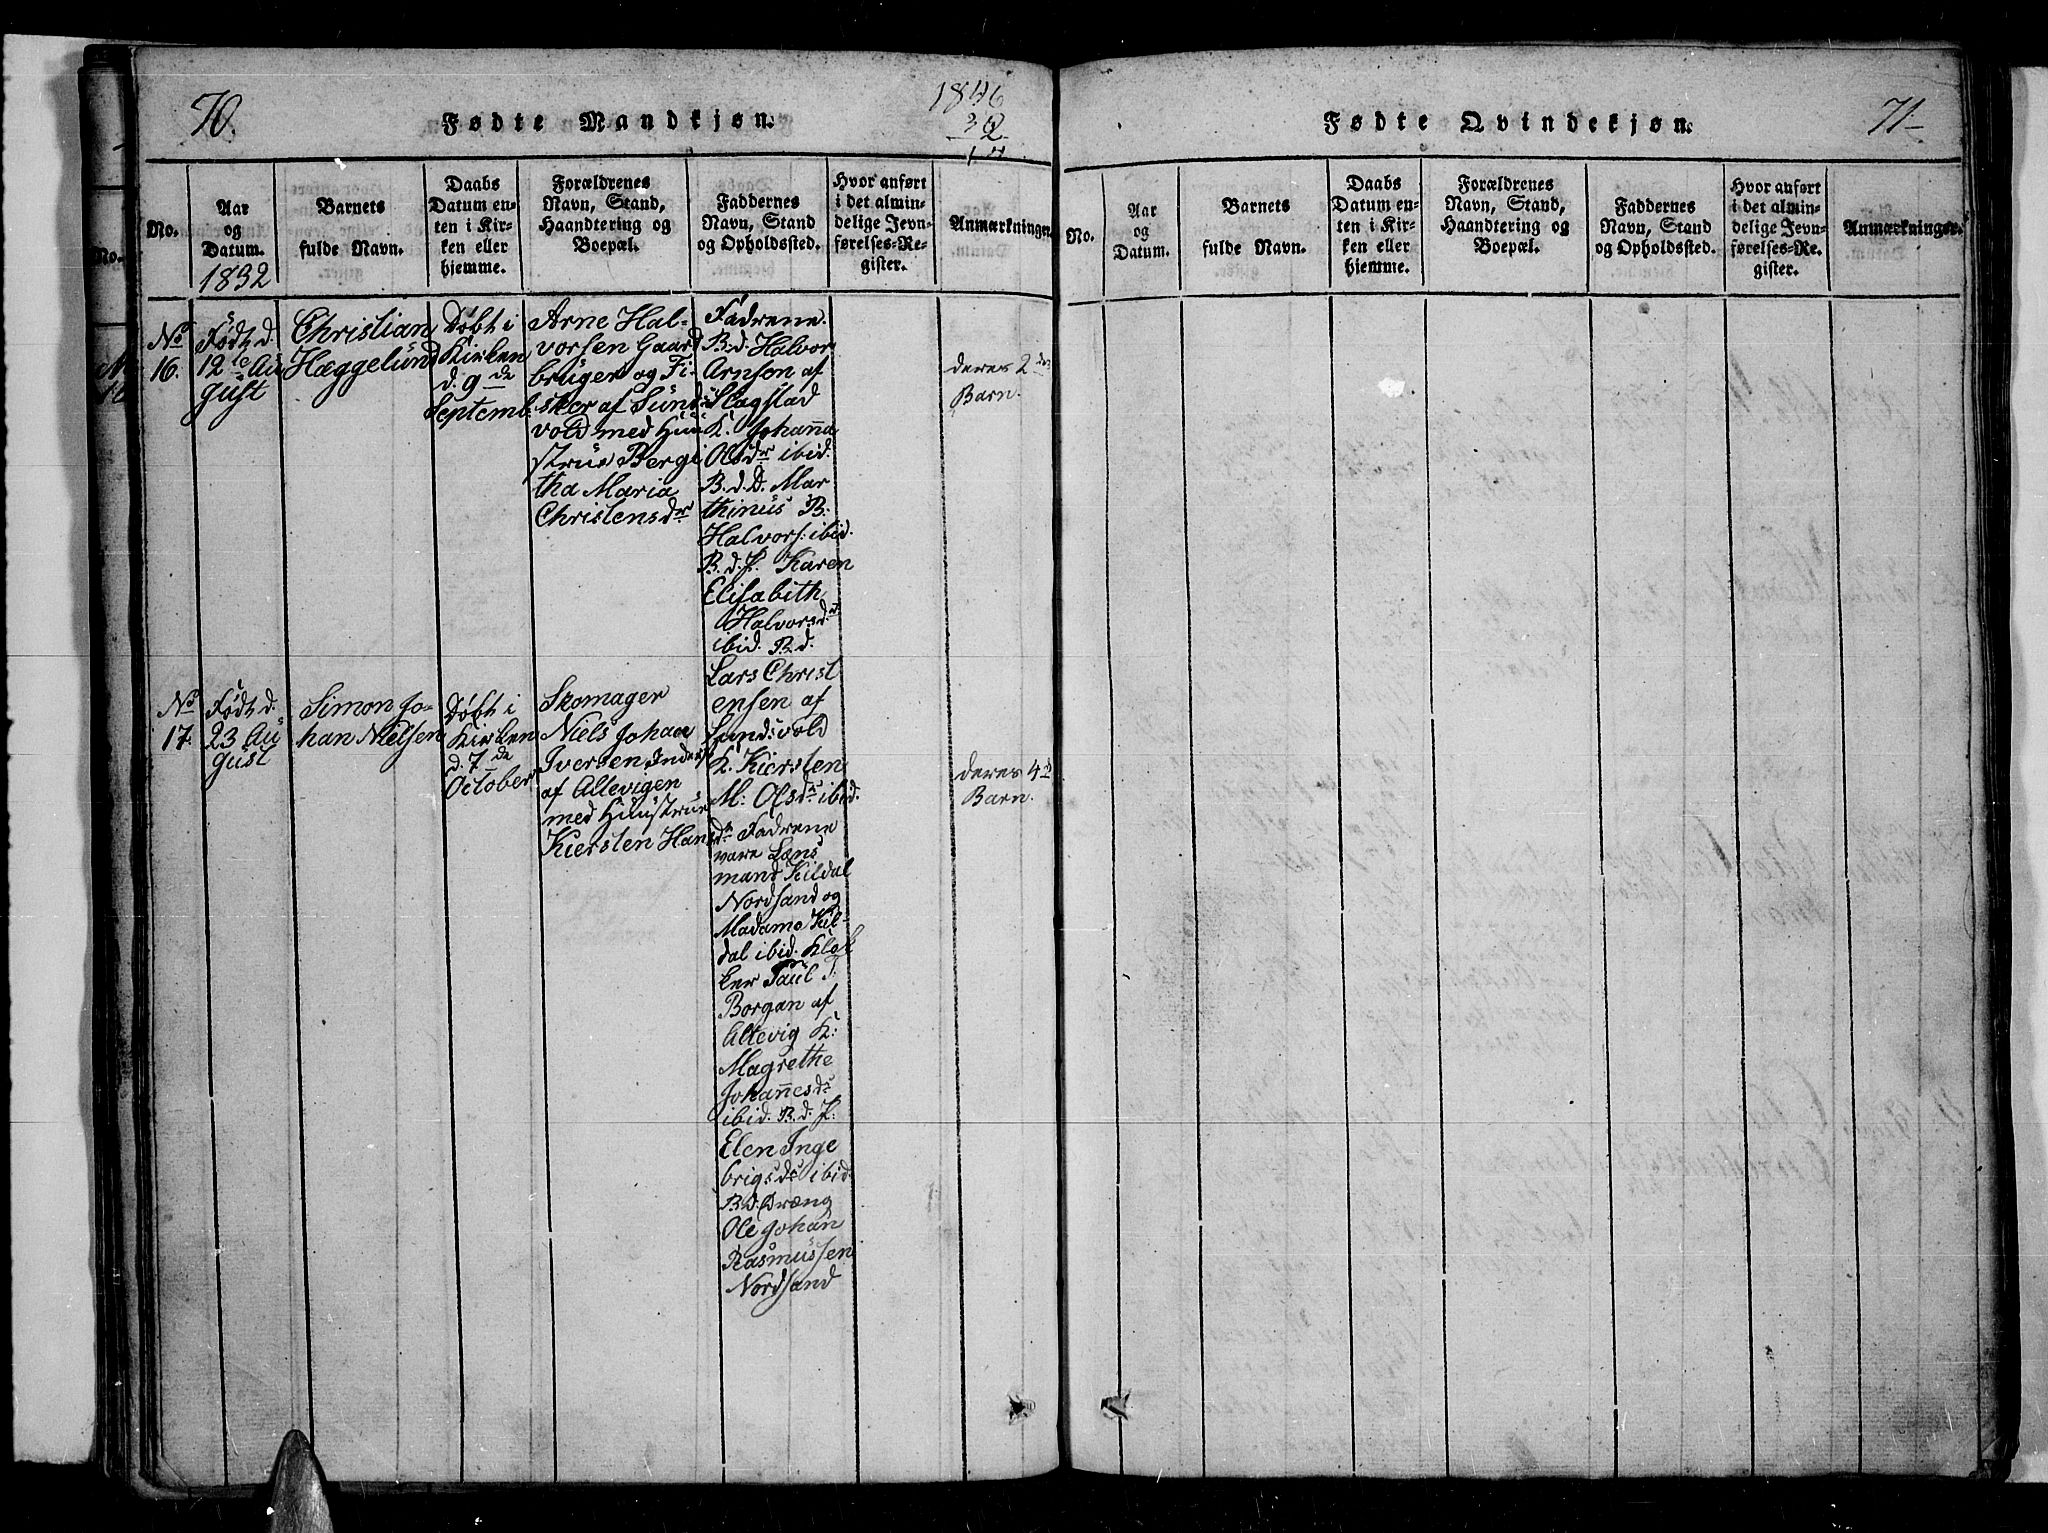 70.
Fødte Mandkjøn.
1846
32
14
No.
Aar
og
Datum.
1832
Barnets
fulde Navn.
Daabs
Datum en-
ten i Kir-
ken eller
hjemme.
Forældrenes
Navn, Stand,
Haandtering og
Boepæl.
Faddernes
Navn, Stand
og Opholdssted.
Hvor anført
i det almin-
delige Jevn-
førelses-Re-
gister.
Anmærkninger.
No.
16.
Født d.
12te Au
gust
Christian
Hæggelund
Døbt i
Kirken
d. 9de
Septemb:
Arne Hal-
vorsen Gaard
bruger og Fi-
sker af Sund:
vold med Huu
strue Bergi
tha Maria
Christensdr
Fadrene.
B.d. Halvor
Arnson af
Slagstad
K. Johanna
Olsdr ibid.
B.d.D. Mar
thinus B.
Halvors: ibid.
B.d.P. Karen
Elisabeth
Halvorsdr
ibid. B.d.
Lars Christ
ensen af
Sund:vold
K. Kiersten
M: Olsdr ibid.
deres 2det
Barn.
No
17.
Født d.
23 Au
gust
Simon Jo-
han Nielsen
Døbt i
Kirken
d. 7de
October
Skomager
Niels Johan
Iversen Inders
af Altevigen
med Huustrue
Kiersten Hans
dr Fadrene
vare Læns
mand Kildal
Nordsand og
Madame Kil-
dal ibid. Klok
ker Paul J:
Borgan af
Altevig K:
Magrethe
Johannesdr
ibid. B.d.P.
Elen Inge
brigsdr ibid.
B.d. Dræng
Ole Johan
Rasmussen
Nordsand
deres 4d
Barn.
Fødte Qvindekjøn.
71-
No.
Aar
og
Datum.
Barnets
fulde Navn.
Daabs
Datum en-
ten i Kir-
ken eller
hjemme.
Forældrenes
Navn, Stand,
Haandtering og
Boepæl.
Faddernes
Navn, Stand
og Opholdssted.
Hvor anført
i det almin-
delige Jevn-
førelses-Re-
gister.
Anmærkninger.